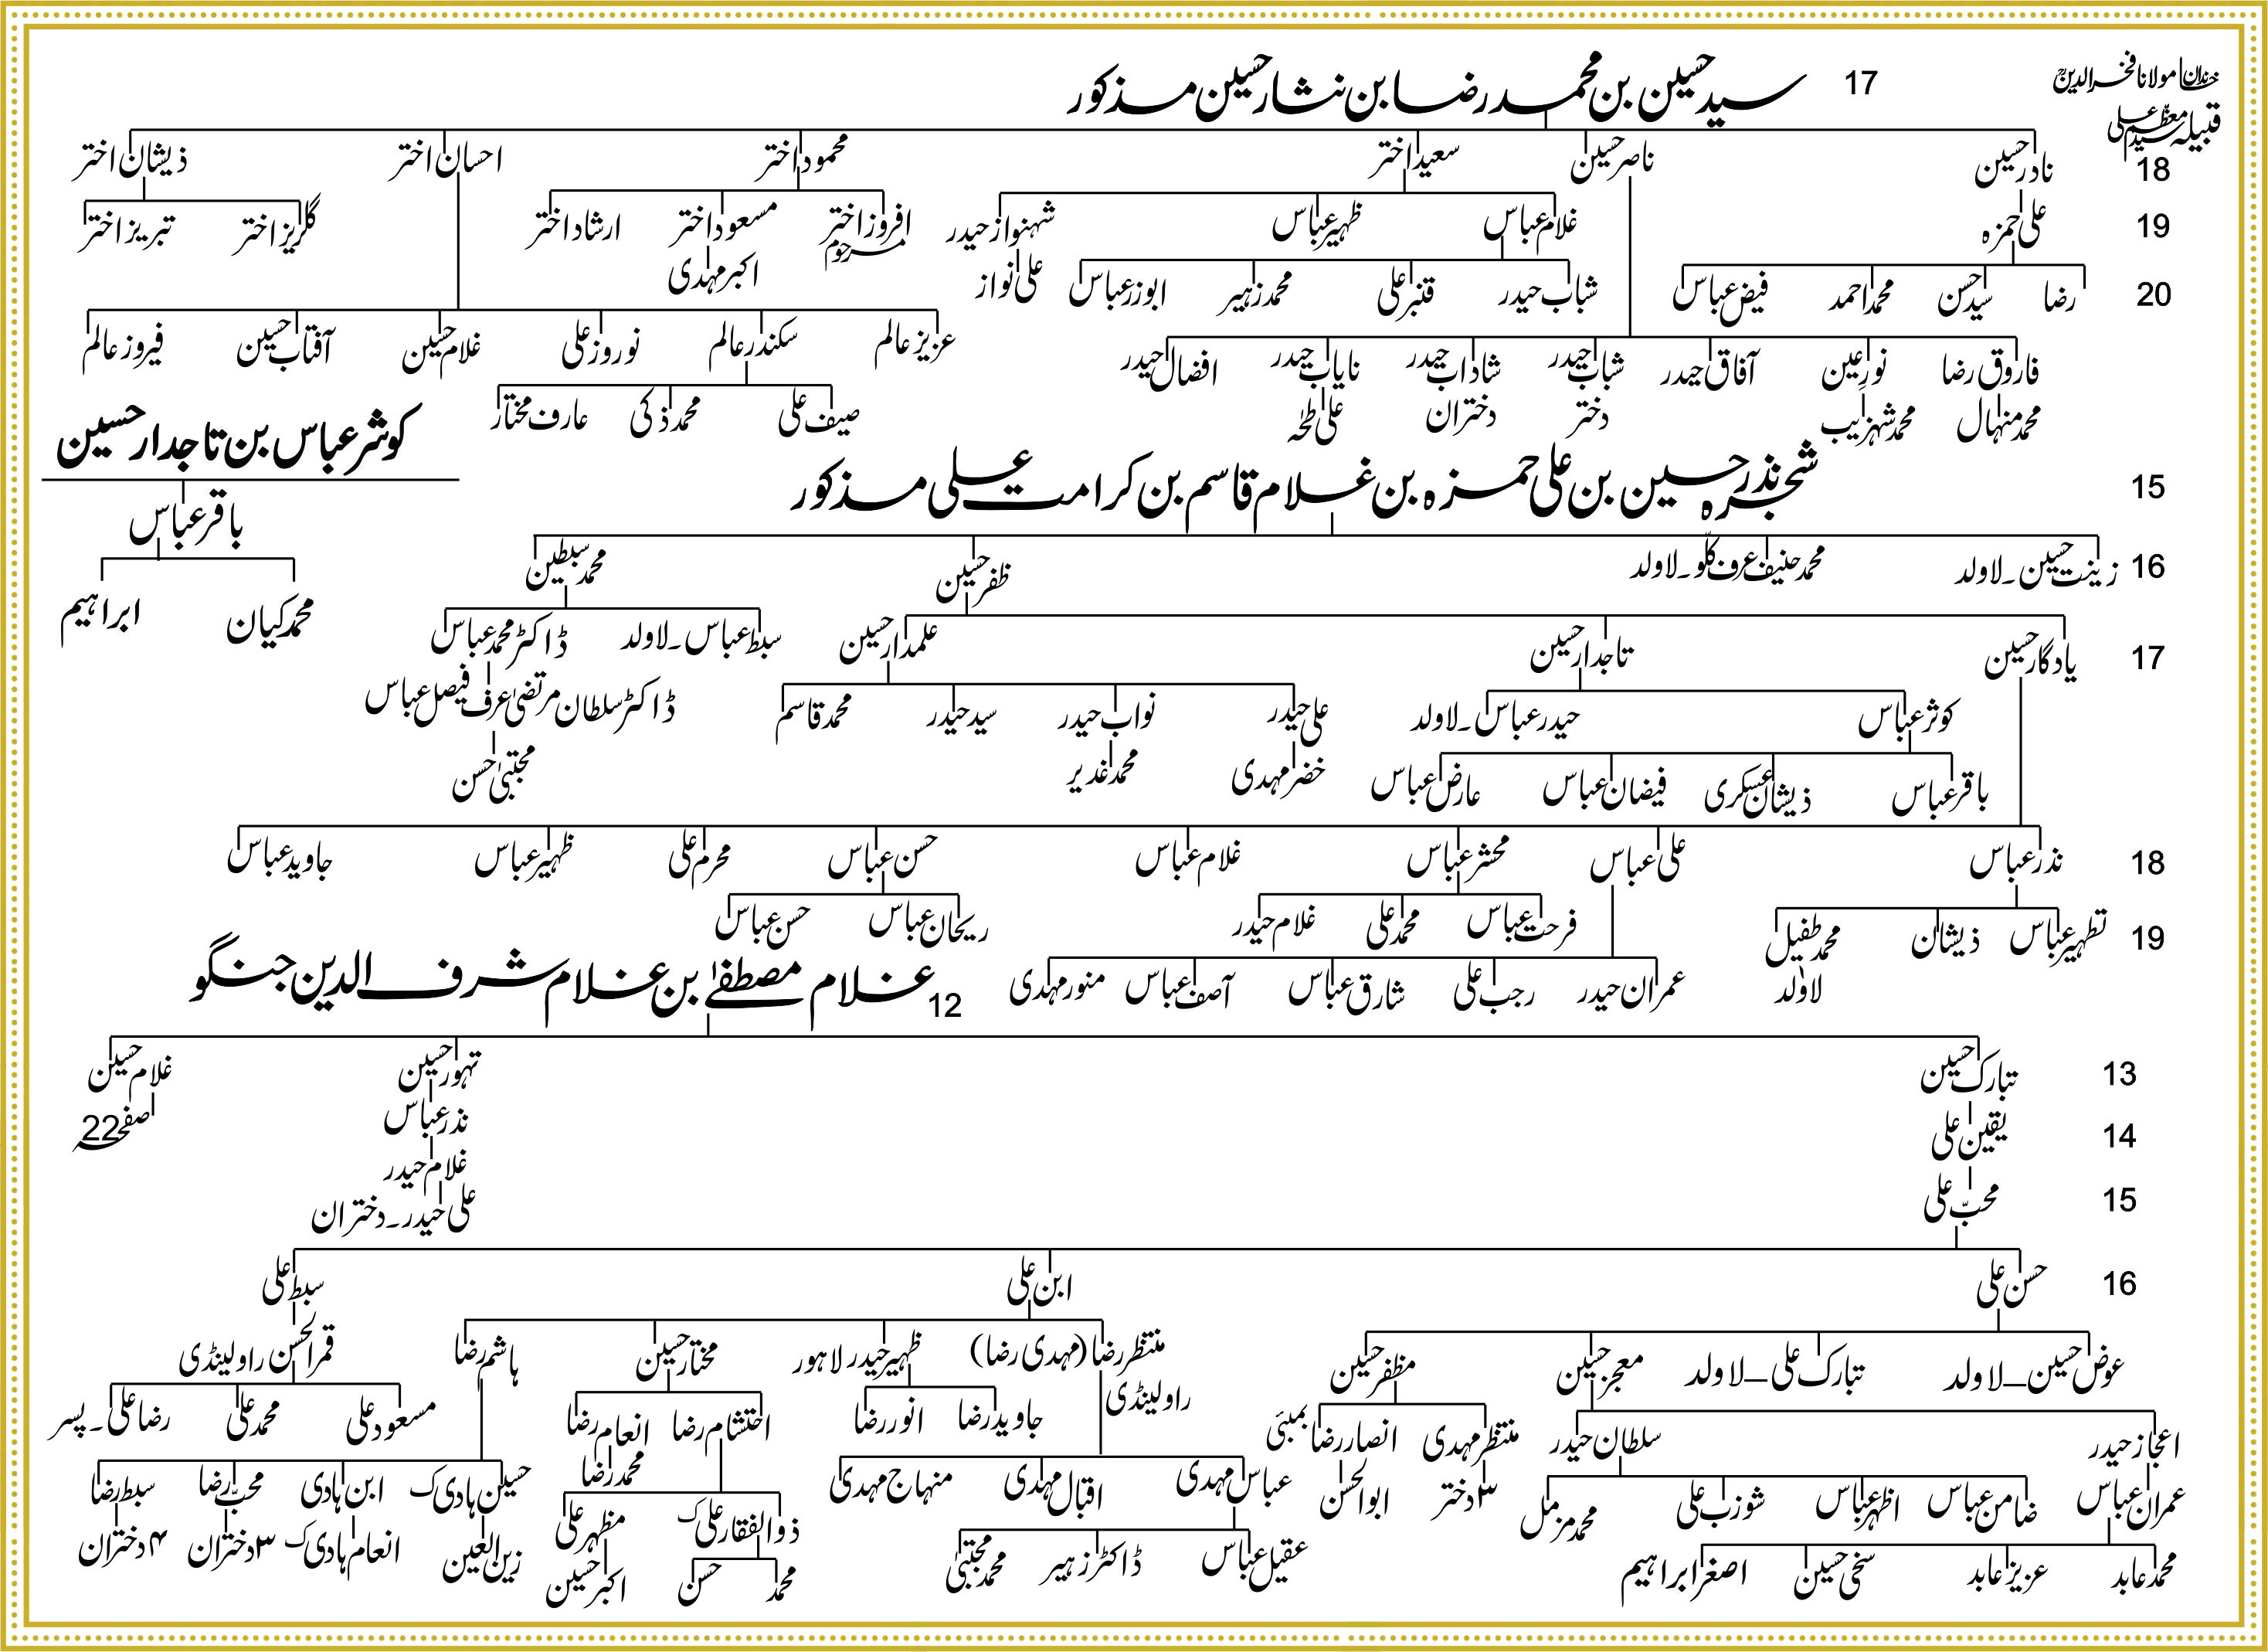 خاندان مولانا فخرالدینؒ
قبیلہ سید معظّم علی
17 سید حسین بن محمد رضا بن نثار حسین مذکور
18 نادر حسین ناصر حسین سعید اختر محمود اختر احسان اختر ذیشان اختر
19 علی حمزہ غلام عباس ظہیر عباس شہنواز حیدر افروز اختر مرحوم مسعود اختر ارشاد اختر گلریز اختر تبریز اختر
20 رضا سید حسن محمد احمد فیض عباس شباب حیدر قنبر علی محمد زہیر ابوزر عباس علی نواز اکبر مہدی
عزیز عالم سکندر عالم نوروز علی غلام حسین آفتاب حسین فیروز عالم
فاروق رضا نور عین آفاق حیدر شباب حیدر شاداب حیدر نایاب حیدر افضال حیدر
محمد منہال محمد شہزیب دختر دختران علی طہٰ صیف علی محمد ذکی عارف مختار
کوثر عباس بن تاجدار حسین
باقر عباس
محمد کیان ابراہیم
15 شجرہ نذر حسین بن علی حمزہ بن غلام قاسم بن کرامت علی مذکور
16 زینت حسین۔لاولد محمد حنیف عرف کلّو۔لاولد ظفر حسین محمد سبطین
17 یادگار حسین تاجدار حسین علمدار حسین سبط عباس۔لاولد ڈاکٹر محمد عباس
کوثر عباس حیدر عباس۔لاولد علی حیدر نواب حیدر سید حیدر محمد قاسم ڈاکٹر سلطان مرتضیٰ عرف فیصل عباس
باقر عباس ذیشان عسکری فیضان عباس عارض عباس خضر مہدی محمد غدیر مجتبیٰ حسن
18 نذر عباس علی عباس محشر عباس غلام عباس حسن عباس محرم علی ظہیر عباس جاوید عباس
19 تطہیر عباس ذیشان محمد طفیل لاولد فرحت عباس محمد علی غلام حیدر ریحان عباس حسن عباس
عمران حیدر رجب علی شارق عباس آصف عباس منور مہدی
12 غلام مصطفےٰ بن غلام شرف الدین جنگو
13 تبارک حسین تہور حسین غلام حسین
14 یقین علی نذر عباس صفحہ 22
غلام حیدر
15 محبّ علی علی حیدر۔دختران
16 حسن علی ابن علی سبط علی
عوض حسین_لاولد تبارک علی_لاولد معجز حسین مظفر حسین منتظر رضا (مہدی رضا) راولپنڈی ظہیر حیدر لاہور مختار حسین ہاشم رضا قمرالحسن راولپنڈی
اعجاز حیدر سلطان حیدر منتظر مہدی انصار رضا بمبئی جاوید رضا انور رضا احتشام رضا انعام رضا مسعود علی محمد علی رضا علی۔پسر
عمران عباس ضامن عباس اظہر عباس شوزب علی محمد مزمل ۳دختر ابوالحسن عباس مہدی اقبال مہدی منہاج مہدی محمد رضا حسین ہادی ک ابن ہادی محبّ رضا سبط رضا
ذوالفقار علی ک مظہر علی زین العین انعام ہادی ک ۳دختران ۴دختران
محمد عابد عزیز عابد سخی حسین اصغر ابراہیم عقیل عباس ڈاکٹر زہیر محمد مجتبیٰ محمد حسن اکبر حسین